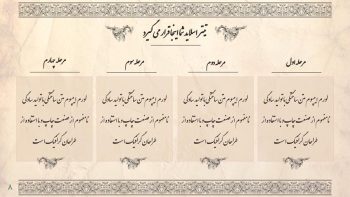 تیتر اسلاید شما اینجا قرار می گیرد
مرحله اول
مرحله دوم
مرحله سوم
مرحله چهارم
لورم ایپسوم متن ساختگی با تولید سادگی
نامفهوم از صنعت چاپ و با استفاده از
طراحان گرافیک است
لورم ایپسوم متن ساختگی با تولید سادگی
نامفهوم از صنعت چاپ و با استفاده از
طراحان گرافیک است
لورم ایپسوم متن ساختگی با تولید سادگی
نامفهوم از صنعت چاپ و با استفاده از
طراحان گرافیک است
لورم ایپسوم متن ساختگی با تولید سادگی
نامفهوم از صنعت چاپ و با استفاده از
طراحان گرافیک است
۸